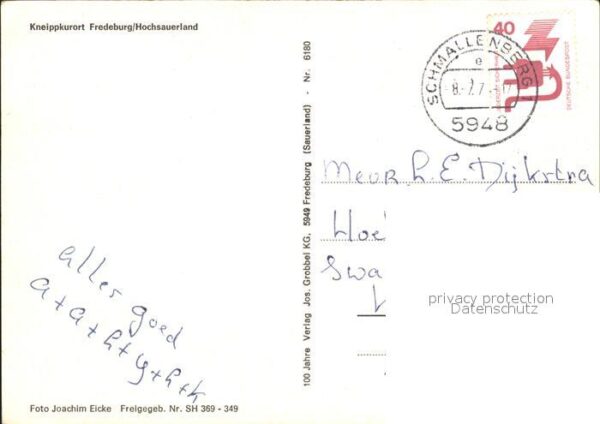 Kneippkurort Fredeburg/Hochsauerland
alles goed
a + a + h + y + h + k
Foto Joachim Eicke Freigegeb. Nr. SH 369 - 349
100 Jahre Verlag Jos. Grobbel KG, 5949 Fredeburg (Sauerland) - Nr. 6180
40
DEUTSCHE BUNDESPOST
SCHMALLENBERG 1
e
5948
Meur. h. E. Dijkstra
Hoe
Swa
privacy protection
Datenschutz